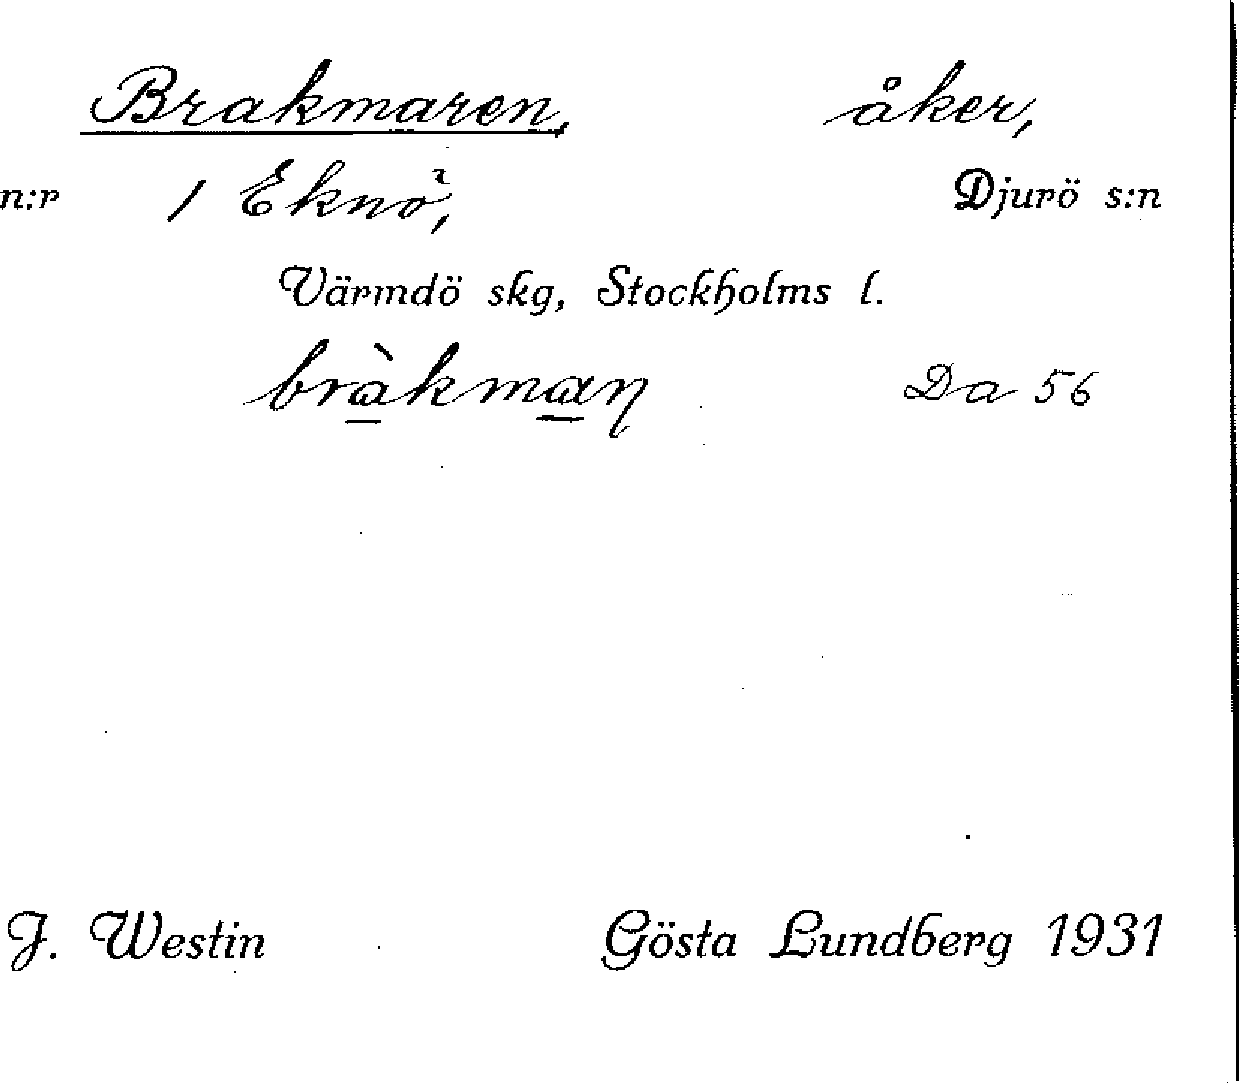 Brakmaren, åker,
n:r 1 Eknö, Djurö s:n
Värmdö skg, Stockholms l.
bràkmaꞃ Da 56
J. Westin Gösta Lundberg 1931